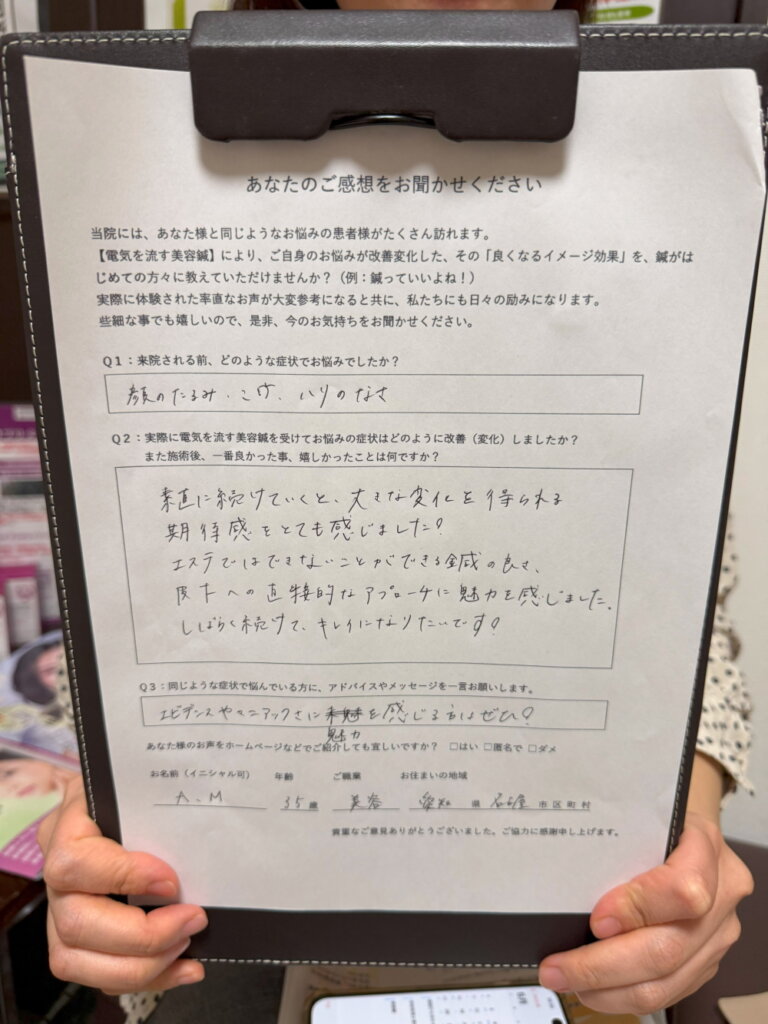 あなたのご感想をお聞かせください
当院には、あなた様と同じようなお悩みの患者様がたくさん訪れます。
【電気を流す美容鍼】により、ご自身のお悩みが改善変化した、その「良くなるイメージ効果」を、鍼がは
じめての方々に教えていただけませんか？（例：鍼っていいよね！）
実際に体験された率直なお声が大変参考になると共に、私たちにも日々の励みになります。
些細な事でも嬉しいので、是非、今のお気持ちをお聞かせください。
Q1：来院される前、どのような症状でお悩みでしたか？
顔のたるみ・こけ、ハリのなさ
Q2：実際に電気を流す美容鍼を受けてお悩みの症状はどのように改善（変化）しましたか？
また施術後、一番良かった事、嬉しかったことは何ですか？
素直に続けていくと、大きな変化を得られる
期待感をとても感じました！
エステではできないことができる鍼の良さ、
皮下への直接的なアプローチに魅力を感じました。
しばらく続けて、キレイになりたいです！
Q3：同じような症状で悩んでいる方に、アドバイスやメッセージを一言お願いします。
エビデンスやマニアックさに魅力を感じる方はぜひ！
あなた様のお声をホームページなどでご紹介しても宜しいですか？ □はい □匿名で □ダメ
お名前（イニシャル可） 年齢 ご職業 お住まいの地域
A.M 35歳 美容 愛知県 名古屋市区町村
貴重なご意見ありがとうございました。ご協力に感謝申し上げます。